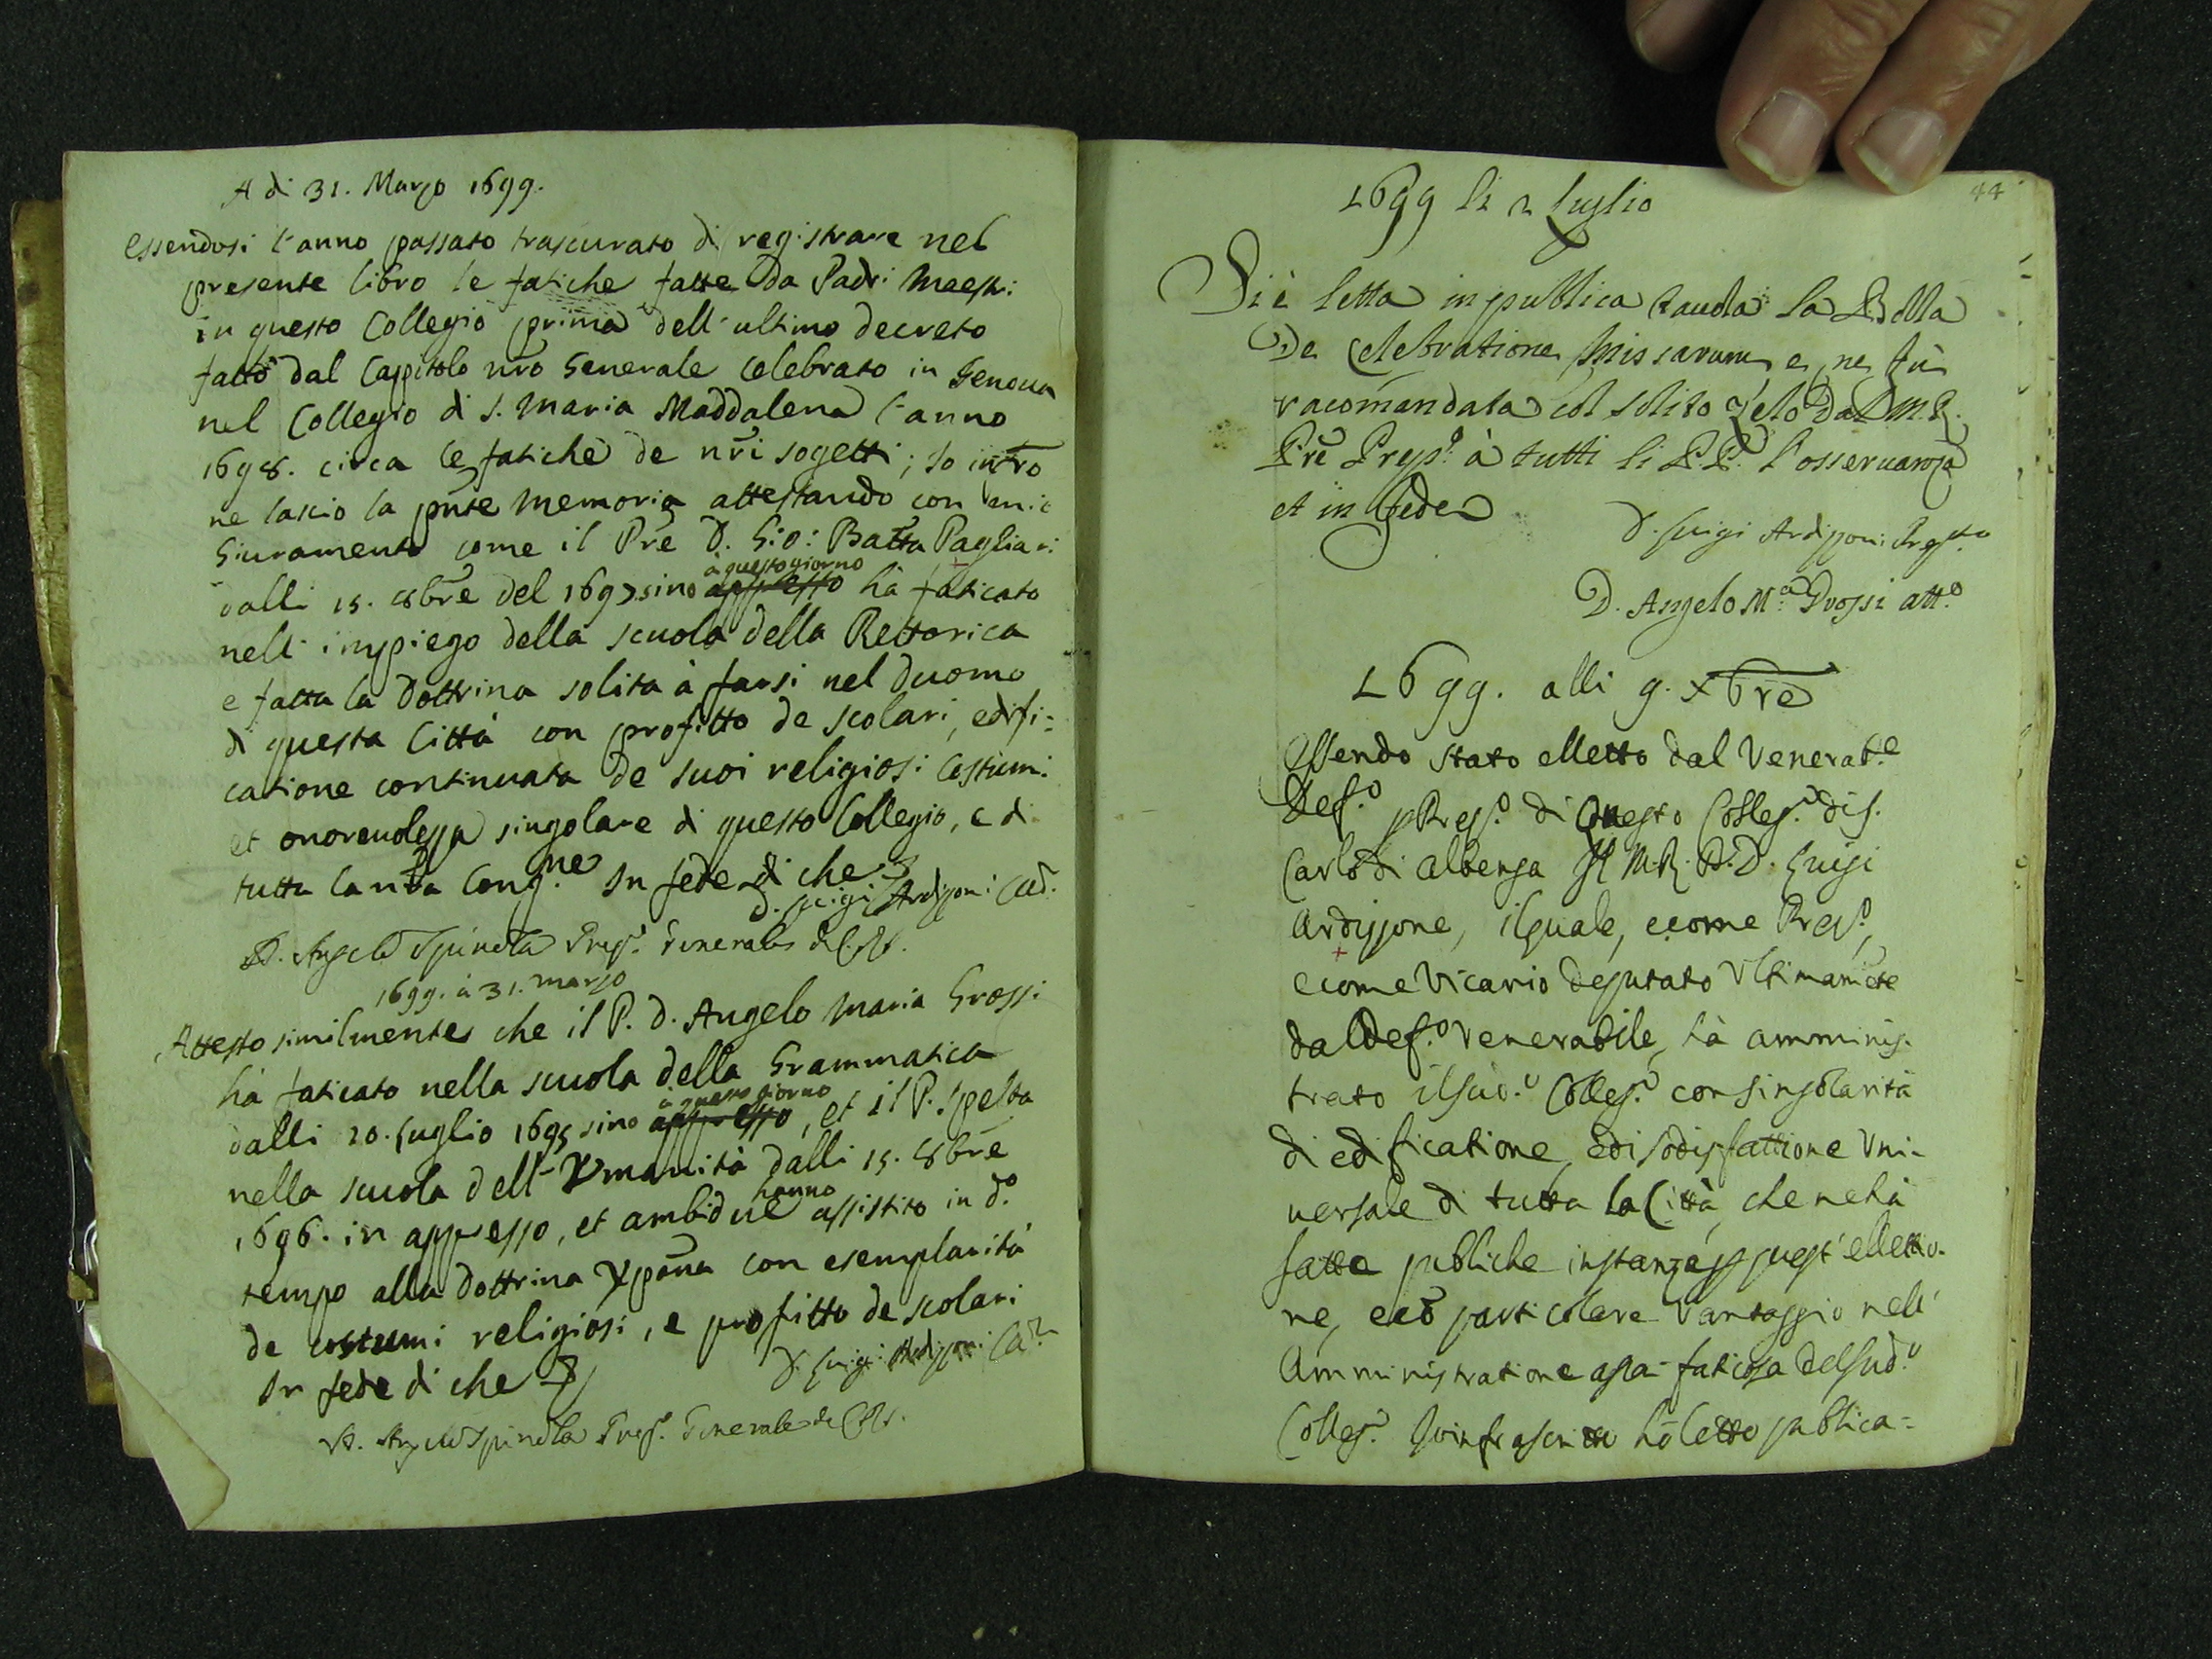 A di 31. Marzo 1699.
Essendosi l'anno passato trascurato di registrare nel
presente libro le fatiche fatte da Padri Maestri
in questo Collegio prima dell'ultimo decreto
fatto dal Cappitolo nr̃o Generale celebrato in Genoua
nel Collegio di S. Maria Maddalena l'anno
1698. circa le fatiche de nr̃i sogetti; Io infr̃o
ne lascio la pñte memoria attestando con mio
Giuramento come il Prẽ D. Gio: Batta Pagliari
à questo giorno
dalli 15. 8bre del 1697 sino appresso hà faticato
nell'impiego della scuola della Rettorica
e fatta la Dottrina solita à farsi nel Duomo
di questa Città con profitto de scolari, edifi=
catione continuata de suoi religiosi costumi
et onoreuolezza singolare di questo Collegio, e di
tutta la nr̃a Cong.ne In fede di che
D. Luigi Ardizzoni
D. Angelo Spinola Prep.o Generale
1699. à 31. marzo
Attesto similmente che il P. D. Angelo Maria Grossi
hà faticato nella scuola della Grammatica
à questo giorno
dalli 20. Luglio 1695 sino appresso, et il P. Spelta
nella scuola dell'Vmanità dalli 15. 8bre
hanno
1696. in appresso, et ambidue assistito in d.o
tempo alla Dottrina Xpãna con esemplarità
de costumi religiosi, e profitto de scolari
In fede di che
D. Luigi Ardizzoni
D. Angelo Spinola Prep.o Generale
44
1699 li 2 Luglio
Si è letta in publica tauola la Bolla
De Celebratione Missarum e ne fù
racomandata col solito Zelo dal M. R.
Prẽ Prep.o à tutti li P.P. l'osseruanza
et in fede
D. Luigi Ardizzoni Prep.to
D. Angelo M.a Grossi att.o
1699. alli 9. Xbre
Essendo stato elletto dal Venerab.e
Def.o p Prep.o di Questo Colleg.o di S.
Carlo di Albenga Il M. R. P. D. Luigi
Ardizzone, il quale, e come Prep.o,
e come Vicario deputato Vltimamẽte
dal Def.o Venerabile, hà amminis-
trato il sud.o Colleg.o con singolarità
di edificatione, e di sodisfattione Vni-
uersale di tutta la Città, che ne hà
fatte publiche instanze p quest'ellettio-
ne, e cõ particolare Vantaggio nell'
Amministratione assai faticosa del sud.o
Colleg.o Io infrascritto hò letto publica=